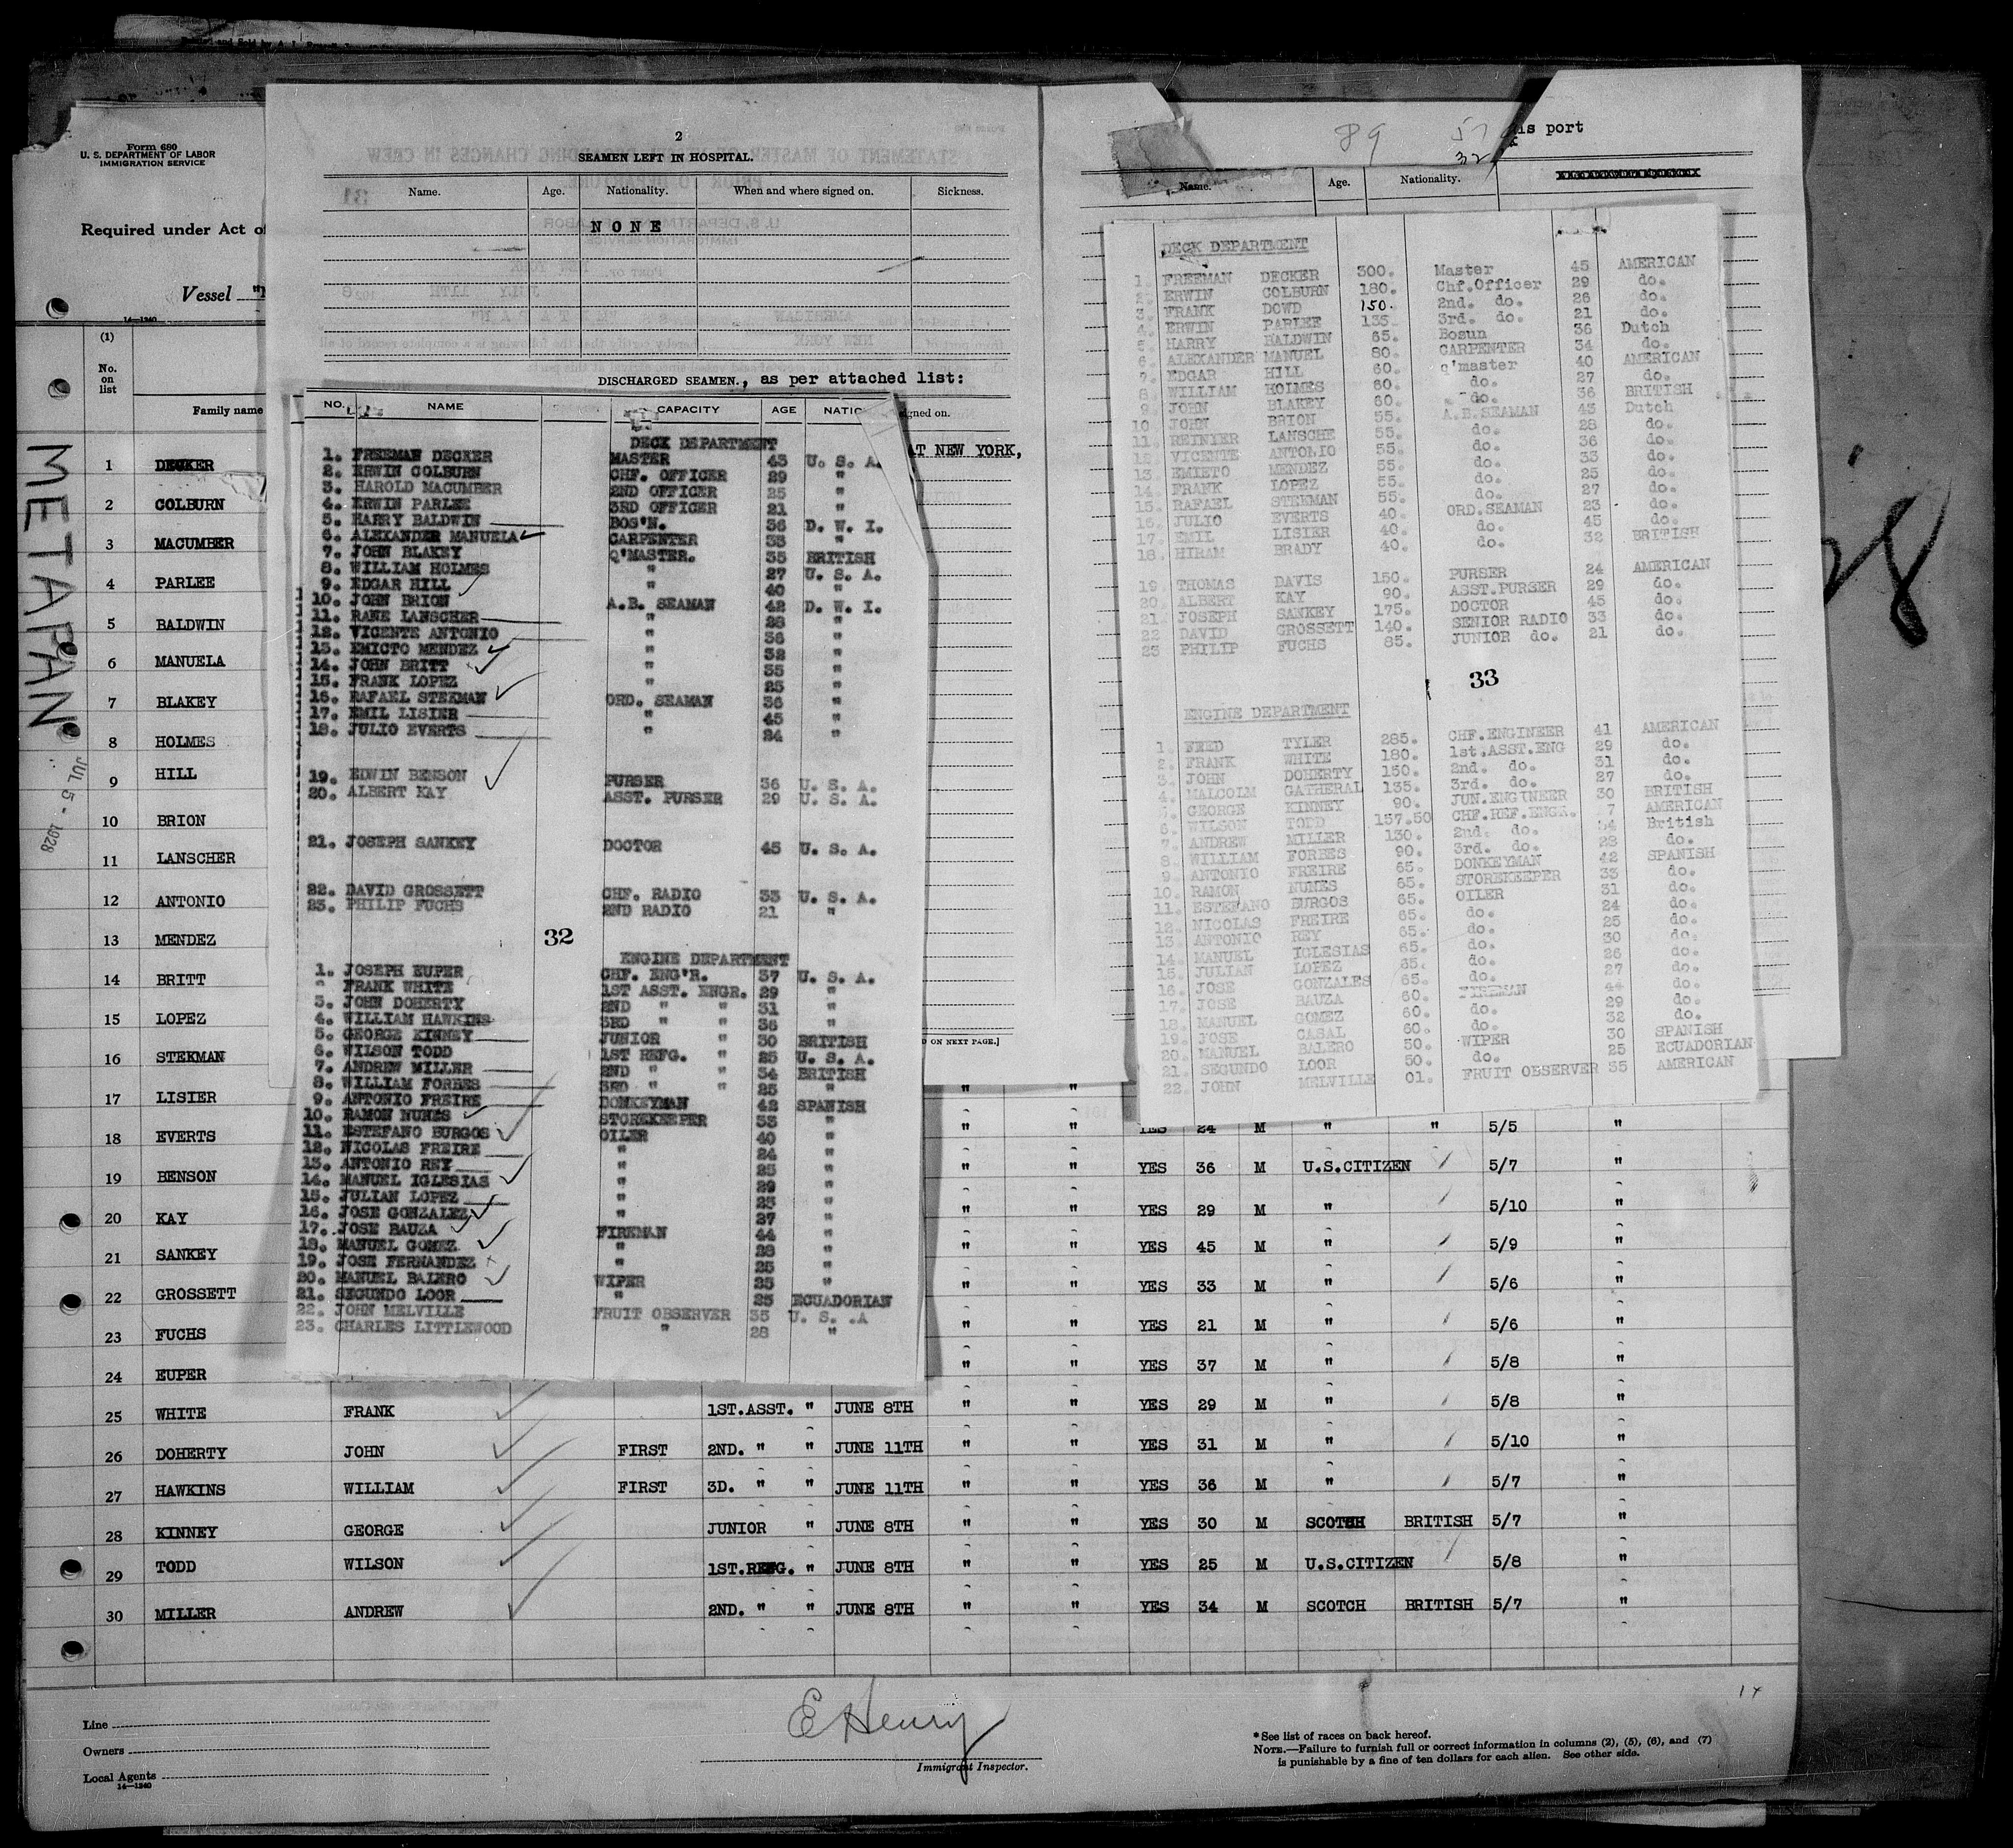 Form 680
U. S. DEPARTMENT OF LABOR
IMMIGRATION SERVICE
Required under Act of
Vessel
14—1240
(1)
No. on list
Family name
METAPAN
JUL 5 - 1928
1 DECKER
2 COLBURN
3 MACUMBER
4 PARLEE
5 BALDWIN
6 MANUELA
7 BLAKEY
8 HOLMES
9 HILL
10 BRION
11 LANSCHER
12 ANTONIO
13 MENDEZ
14 BRITT
15 LOPEZ
16 STEKMAN
17 LISIER
18 EVERTS
19 BENSON
20 KAY
21 SANKEY
22 GROSSETT
23 FUCHS
24 EUPER
2
SEAMEN LEFT IN HOSPITAL.
Name. Age. Nationality. When and where signed on. Sickness.
NONE
DISCHARGED SEAMEN., as per attached list:
signed on.
AT NEW YORK,
ON NEXT PAGE.]
NO. NAME CAPACITY AGE
DECK DEPARTMENT
1. FREEMAN DECKER MASTER 45 U. S. A.
2. ERWIN COLBURN CHF. OFFICER 29 "
3. HAROLD MACUMBER 2ND OFFICER 25 "
4. ERWIN PARLEE 3RD OFFICER 21 "
5. HARRY BALDWIN BOS'N. 36 D. W. I.
6. ALEXANDER MANUELA CARPENTER 33 "
7. JOHN BLAKEY Q'MASTER. 35 BRITISH
8. WILLIAM HOLMES " 27 U. S. A.
9. EDGAR HILL " 40 "
10. JOHN BRION A.B. SEAMAN 42 D. W. I.
11. RANE LANSCHER " 28 "
12. VICENTE ANTONIO " 36 "
13. EMICTO MENDEZ " 32 "
14. JOHN BRITT " 35 "
15. FRANK LOPEZ " 25 "
16. RAFAEL STEKMAN ORD. SEAMAN 36 "
17. EMIL LISIER " 45 "
18. JULIO EVERTS " 24 "
19. EDWIN BENSON PURSER 36 U. S. A.
20. ALBERT KAY ASST. PURSER 29 U. S. A.
21. JOSEPH SANKEY DOCTOR 45 U. S. A.
22. DAVID GROSSETT CHF. RADIO 33 U. S. A.
23. PHILIP FUCHS 2ND RADIO 21 "
32
ENGINE DEPARTMENT
1. JOSEPH EUPER CHF. ENG'R. 37 U. S. A.
" FRANK WHITE 1ST ASST. ENGR. 29 "
3. JOHN DOHERTY 2ND " " 31 "
4. WILLIAM HAWKINS 3RD " " 36 "
5. GEORGE KINNEY JUNIOR " 30 BRITISH
6. WILSON TODD 1ST REFG. " 25 U. S. A.
7. ANDREW MILLER 2ND " " 34 BRITISH
8. WILLIAM FORBES 3RD " " 25 "
9. ANTONIO FREIRE DONKEYMAN 42 SPANISH
10. RAMON NUNES STOREKEEPER 33 "
11. ESTEFANO BURGOS OILER 40 "
12. NICOLAS FREIRE " 24 "
13. ANTONIO REY " 25 "
14. MANUEL IGLESIAS " 29 "
15. JULIAN LOPEZ " 25 "
16. JOSE GONZALEZ " 27 "
17. JOSE BAUZA FIREMAN 44 "
18. MANUEL GOMEZ " 28 "
19. JOSE FERNANDEZ " 25 "
20. MANUEL BALERO WIPER 25 "
21. SEGUNDO LOOR " 25 ECUADORIAN
22. JOHN MELVILLE FRUIT OBSERVER 35 U. S. A
23. CHARLES LITTLEWOOD " 28 "
89 57
32
is port
Name. Age. Nationality.
DECK DEPARTMENT
1. FREEMAN DECKER 300. Master 45 AMERICAN
2. ERWIN COLBURN 180. Chf.Officer 29 do.
3. FRANK DOWD 150. 2nd. do. 26 do.
4. ERWIN PARLEE 135. 3rd. do. 21 do.
5. HARRY BALDWIN 65. Bosun 36 Dutch
6. ALEXANDER MANUEL 80. CARPENTER 34 do.
7. EDGAR HILL 60. q'master 40 AMERICAN
8. WILLIAM HOLMES 60. do. 27 do.
9. JOHN BLAKEY 60. do. 36 BRITISH
10 JOHN BRION 55. A.B.SEAMAN 43 Dutch
11. REINIER LANSCHE 55. do. 28 do.
12. VICENTE ANTONIO 55. do. 36 do.
13. EMIETO MENDEZ 55. do. 33 do.
14. FRANK LOPEZ 55. do. 25 do.
15. RAFAEL STEKMAN 55. do. 27 do.
16. JULIO EVERTS 40. ORD.SEAMAN 23 do.
17. EMIL LISIER 40. do. 45 do.
18. HIRAM BRADY 40. do. 32 BRITISH
19. THOMAS DAVIS 150. PURSER 24 AMERICAN
20. ALBERT KAY 90. ASST.PURSER 29 do.
21. JOSEPH SANKEY 175. DOCTOR 45 do.
22 DAVID GROSSETT 140. SENIOR RADIO 33 do.
23 PHILIP FUCHS 85. JUNIOR do. 21 do.
33
ENGINE DEPARTMENT
1. FRED TYLER 285. CHF.ENGINEER 41 AMERICAN
2. FRANK WHITE 180. 1st.ASST.ENG 29 do.
3. JOHN DOHERTY 150. 2nd. do. 31 do.
4. MALCOLM GATHERAL 135. 3rd. do. 27 do.
5. GEORGE KINNEY 90. JUN.ENGINEER 30 BRITISH
6. WILSON TODD 157.50 CHF.REF.ENGR. AMERICAN
7. ANDREW MILLER 130. 2nd. do. 34 British
8. WILLIAM FORBES 90. 3rd. do. do.
9. ANTONIO FREIRE 65. DONKEYMAN 42 SPANISH
10. RAMON NUNES 65. STOREKEEPER 33 do.
11. ESTEFANO BURGOS 65. OILER 31 do.
12. NICOLAS FREIRE 65. do. 24 do.
13. ANTONIO REY 65. do. 25 do.
14. MANUEL IGLESIAS 65. do. 30 do.
15. JULIAN LOPEZ 65. do. 26 do.
16. JOSE GONZALES 65. do. 27 do.
17. JOSE BAUZA 60. FIREMAN 44 do.
18. MANUEL GOMEZ 60. do. 29 do.
19. JOSE CASAL 60. do. 32 do.
20. MANUEL BALERO 50. WIPER 30 SPANISH
21. SEGUNDO LOOR 50. do. 25 ECUADORIAN
22. JOHN MELVILLE 01. FRUIT OBSERVER 35 AMERICAN
28
" "
" " YES 24 M " " 5/5 "
" " YES 36 M U.S.CITIZEN 5/7 "
" " YES 29 M " 5/10 "
" " YES 45 M " 5/9 "
" " YES 33 M " 5/6 "
" " YES 21 M " 5/6 "
" " YES 37 M " 5/8 "
25 WHITE FRANK 1ST.ASST. " JUNE 8TH " " YES 29 M " 5/8 "
26 DOHERTY JOHN FIRST 2ND. " " JUNE 11TH " " YES 31 M " 5/10 "
27 HAWKINS WILLIAM FIRST 3D. " " JUNE 11TH " " YES 36 M " 5/7 "
28 KINNEY GEORGE JUNIOR " JUNE 8TH " " YES 30 M SCOTCH BRITISH 5/7 "
29 TODD WILSON 1ST.REFG. " JUNE 8TH " " YES 25 M U.S.CITIZEN 5/8 "
30 MILLER ANDREW 2ND. " " JUNE 8TH " " YES 34 M SCOTCH BRITISH 5/7 "
14
Line
Owners
Local Agents
14—1240
E Henry
Immigrant Inspector.
* See list of races on back hereof.
NOTE.—Failure to furnish full or correct information in columns (2), (5), (6), and (7)
is punishable by a fine of ten dollars for each alien. See other side.